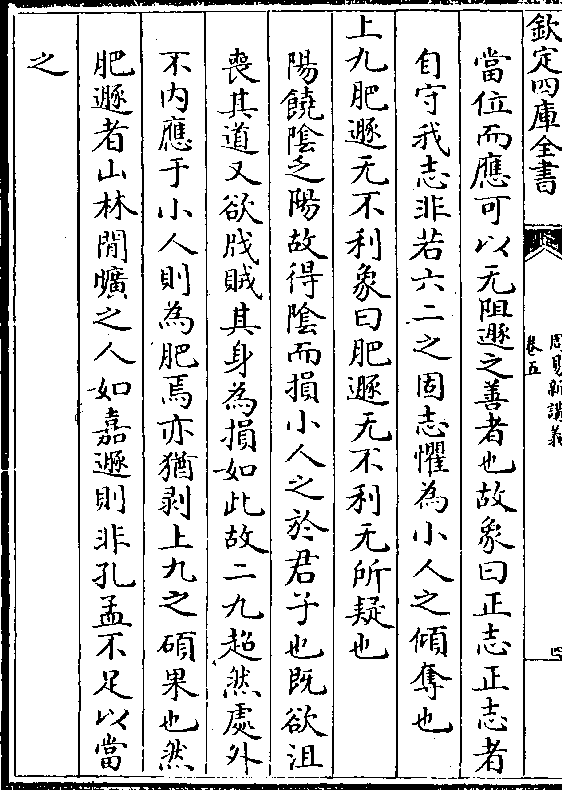 欽定四庫全書
周易新講義
卷五
四
當位而應可以无阻遯之善者也故象曰正志正志者
自守我志非若六二之固志懼為小人之傾奪也
上九肥遯无不利象曰肥遯无不利无所疑也
陽饒隂乏陽故得隂而損小人之於君子也既欲沮
喪其道又欲戕賊其身為損如此故二九超然處外
不内應于小人則為肥焉亦猶剥上九之碩果也然
肥遯者山林閒曠之人如嘉遯則非孔孟不足以當
之